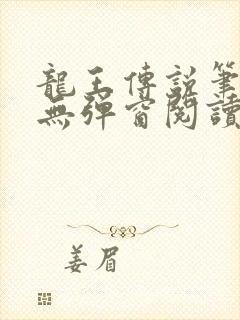 龍王傳說筆
無彈窗閱讀
姜眉